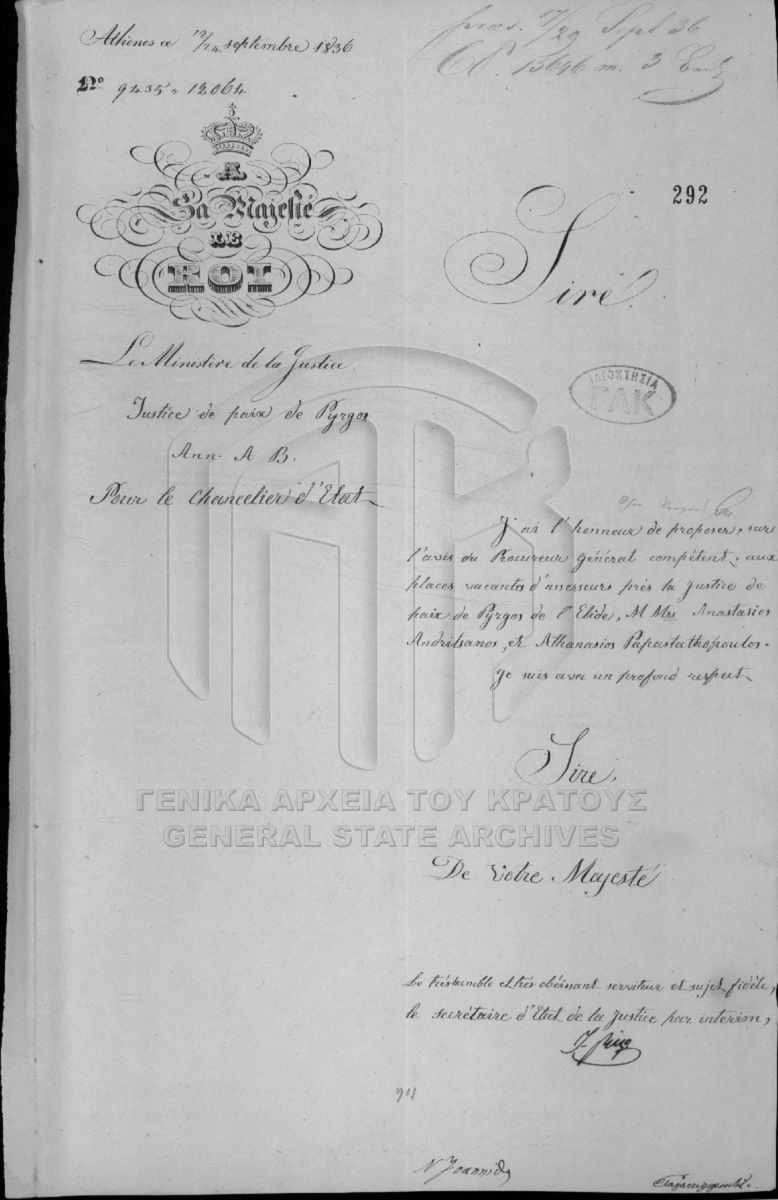 Athènes ce 12/24 septembre 1836
praes. 17/29 Sept 36.
No 9435. 12064
A
Sa Majesté
LE
ROI
292
Siré.
Le Ministère de la Justice.
ΙΔΙΟΚΤΗΣΙΑ
ΓΑΚ
Justice de paix de Pyrgos
Ann. A B.
Pour le chancelier d'Etat
J'ai l'honneur de proposer, sur
l'avis du Procureur général compétent, aux
places vacantes d'assesseurs près la justice de
paix de Pyrgos de l'Elide, M Mrs Anastasios
Andritsanos, et Athanasios Papastathopoulos.
Je suis avec un profond respect
Sire,
ΓΕΝΙΚΑ ΑΡΧΕΙΑ ΤΟΥ ΚΡΑΤΟΥΣ
GENERAL STATE ARCHIVES
De Votre Majesté
Le très humble et très obéissant serviteur et sujet fidèle,
le secrétaire d'Etat de la justice par interim,
N Joannid